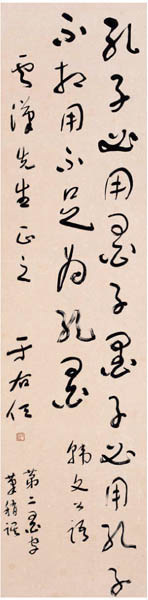 孔子必用墨子墨子必用孔子
不相用不足为孔墨
韩文公语
云汉先生正之
于右任
第二